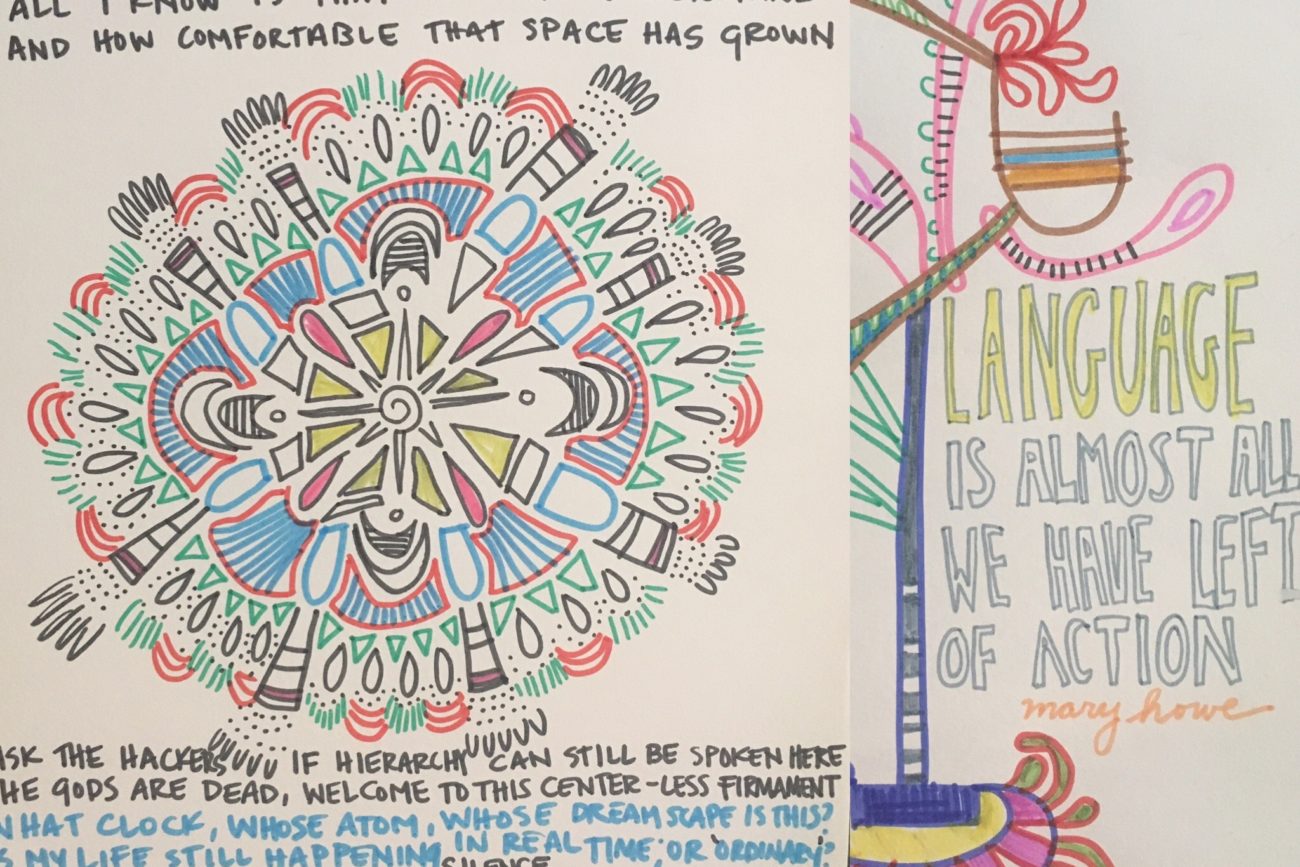 ALL I KNOW IS THAT
AND HOW COMFORTABLE THAT SPACE HAS GROWN
ASK THE HACKERS IF HIERARCHY CAN STILL BE SPOKEN HERE
THE GODS ARE DEAD, WELCOME TO THIS CENTER-LESS FIRMAMENT
WHAT CLOCK, WHOSE ATOM, WHOSE DREAMSCAPE IS THIS?
IS MY LIFE STILL HAPPENING IN REAL TIME, OR 'ORDINARY'?
SILENCE
LANGUAGE
IS ALMOST ALL
WE HAVE LEFT
OF ACTION
mary howe